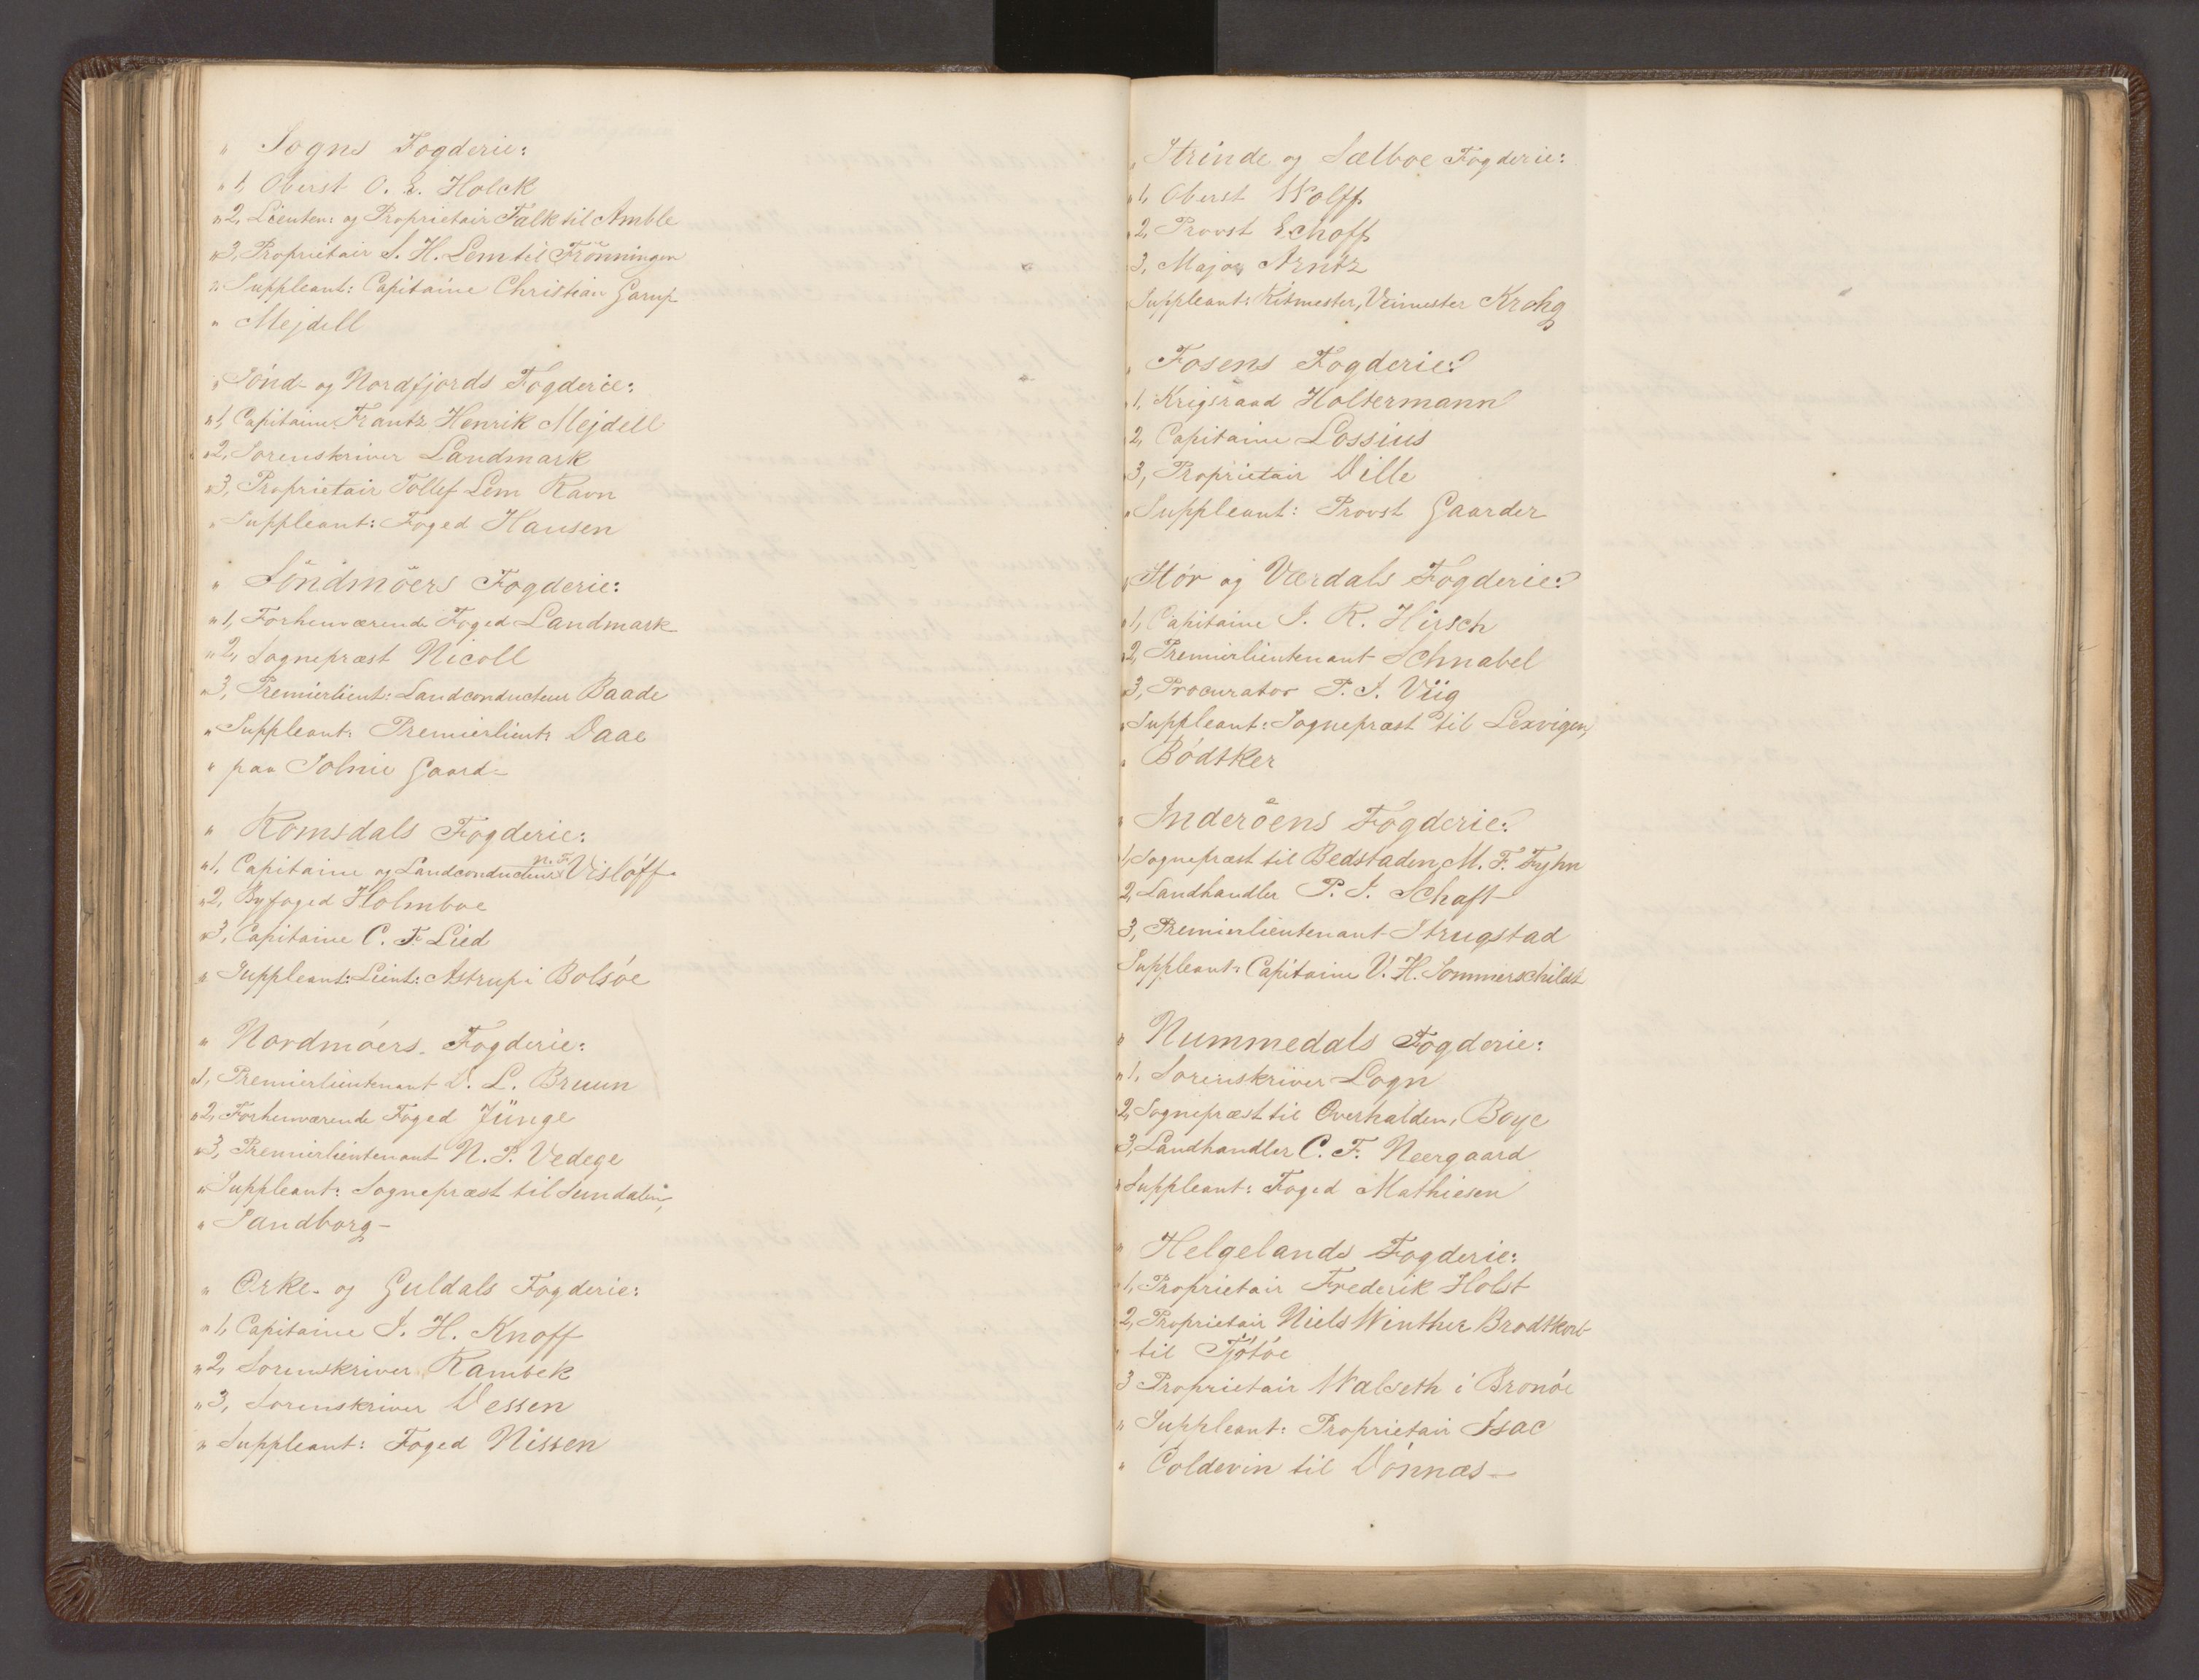 " Sogns Fogderie:
" 1, Oberst O. E. Holck
" 2, Lieuten: og Proprietair Falk til Amble
" 3, Proprietair S. H. Lem til Frönningen
" Suppleant: Capitaine Christian Garup
" Mejdell
" Sönd- og Nordfjords Fogderie:
" 1, Capitaine Frantz Henrik Mejdell
" 2, Sorenskriver Landmark
" 3, Proprietair Tollef Lem Ravn
" Suppleant: Foged Hansen
" Söndmöers Fogderie:
" 1, Forhenværende Foged Landmark
" 2, Sognepræst Nicoll
" 3, Premierlieut: Landconducteur Baade
" Suppleant: Premierlieut: Daae
" paa Solnie Gaard-
" Romsdals Fogderie:
" 1, Capitaine og Landconducteur N. F. Vislöff
" 2, Byfoged Holmboe
" 3, Capitaine C. F Lied
" Suppleant: Lieut: Astrup i Bolsöe
" Nordmöers Fogderie:
" 1, Premierlieutenant D. L. Bruun
" 2, Forhenværende Foged Jünge
" 3, Premierlieutenant N. P. Vedege
" Suppleant: Sognepræst til Sundalen,
" Sandborg-
" Orke- og Guldals Fogderie:
" 1, Capitaine J. H. Knoff
" 2, Sorenskriver Rambek
" 3, Sorenskriver Wessen
" Suppleant: Foged Nissen
" Strinde og Sælboe Fogderie:
" 1, Oberst Wolff
" 2, Provst Echoff
" 3, Major Arntz
Suppleant: Ritmester, Veimester Krohg
" Fosens Fogderie:
" 1, Krigsraad Holtermann
2, Capitaine Lossius
" 3, Proprietair Dille
" Suppleant: Provst Gaarder
" Stör og Værdals Fogderie:
" 1, Capitaine J. R. Hirsch
" 2, Premierlieutenant Schnabel
" 3, Procurator P. S. Viig
" Suppleant: Sognepræst til Lexvigen,
" Bödtker
" Inderöens Fogderie:
1, Sognepræst til Bedstaden, M. F. Fyhn
2, Landhandler P. J. Schaft
3, Premierlieutenant Strugstad
Suppleant: Capitaine V. H. Sommerschildt
" Nummedals Fogderie:
" 1, Sorenskriver Logn
2, Sognepræst til Overhalden, Boye
" 3, Landhandler C. F. Neergaard
" Suppleant: Foged Mathiesen
" Helgelands Fogderie:
" 1, Proprietair Frederik Holst
2, Proprietair Niels Winther Brodtkorb
" til Tjötöe
3 Proprietair Walseth i Bronöe
" Suppleant: Proprietair Isac
" Coldevin til Dönnæs-